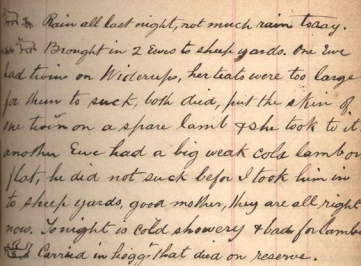 Rain all last night, not much rain today.
Brought in 2 Ewes to sheep yards. One Ewe
had twins on Widerups, her teats were too large
for them to suck, both died, put the skin of
one twin on a spare lamb & she took to it
another Ewe had a big weak cold lamb on
flat, he did not suck befor I took him in
to sheep yards, good mother, they are all right
now. Tonight is cold showery & bad for lambs
Carried in hogg that died on reserve.